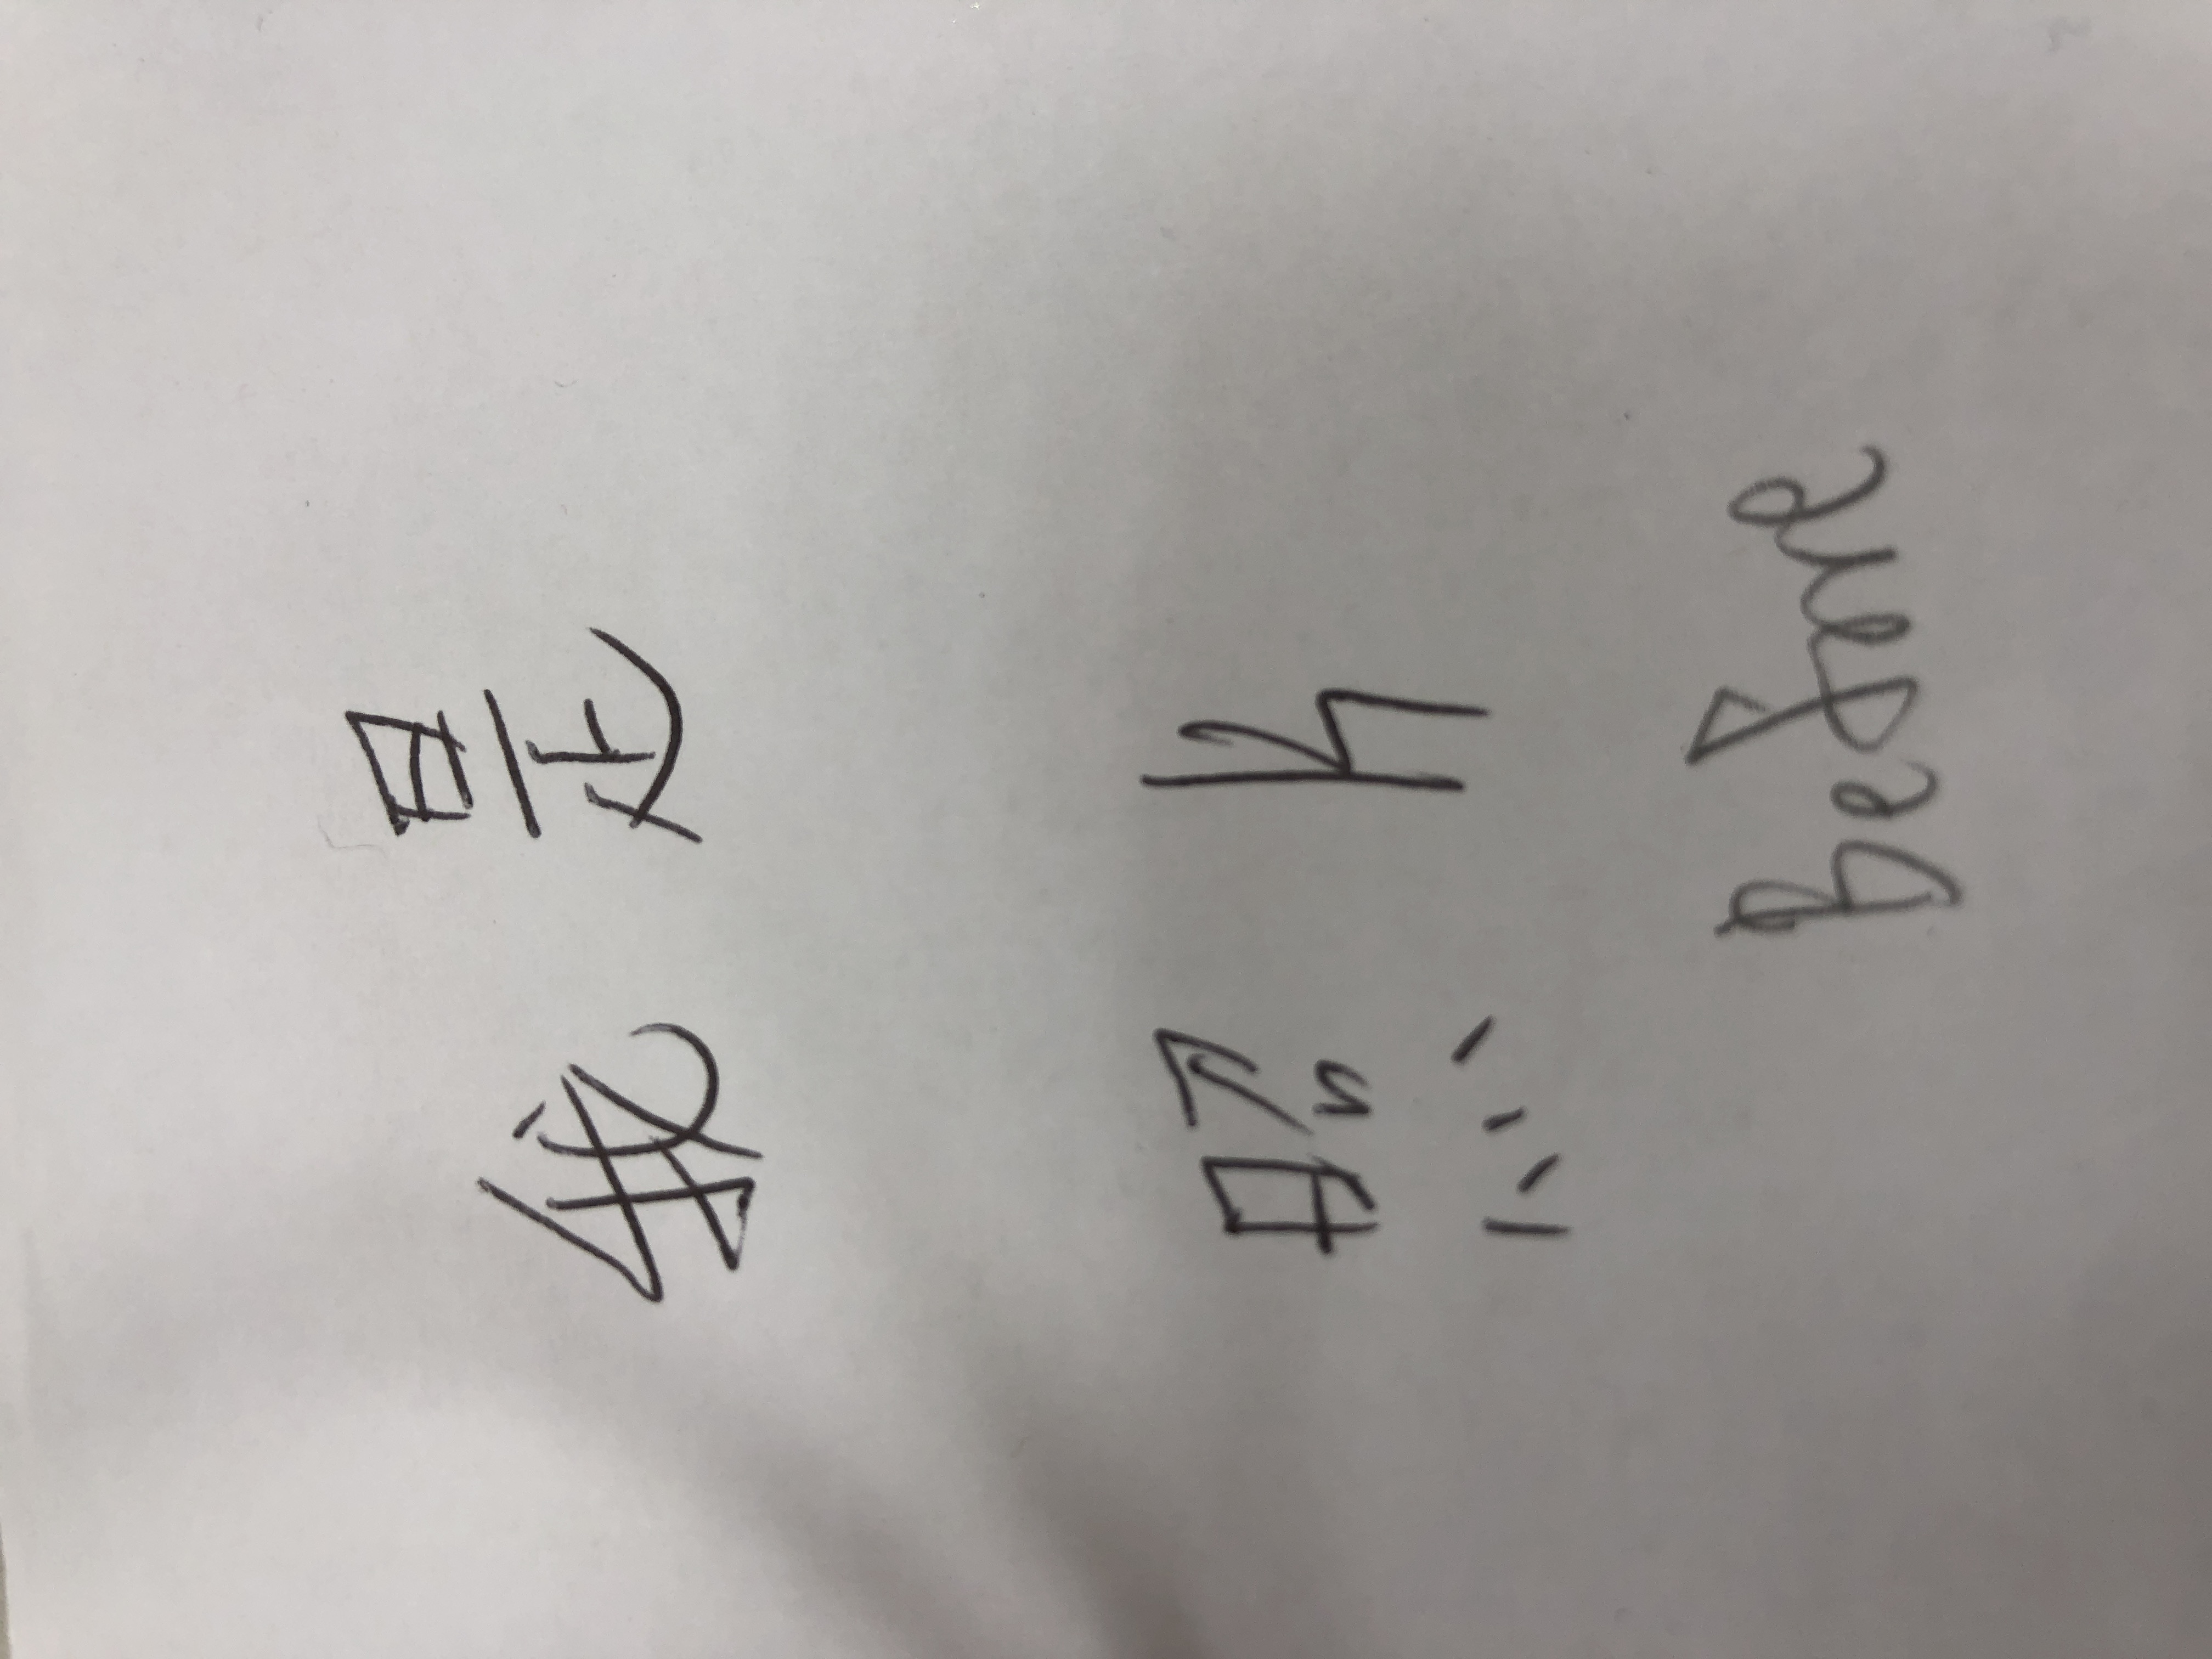 我是
照K
Before